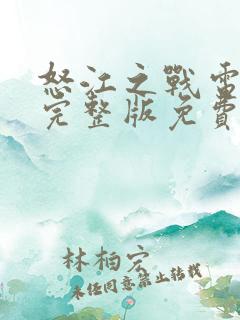 怒江之戰電
完整版免費
林柏宏
未经同意禁止转载